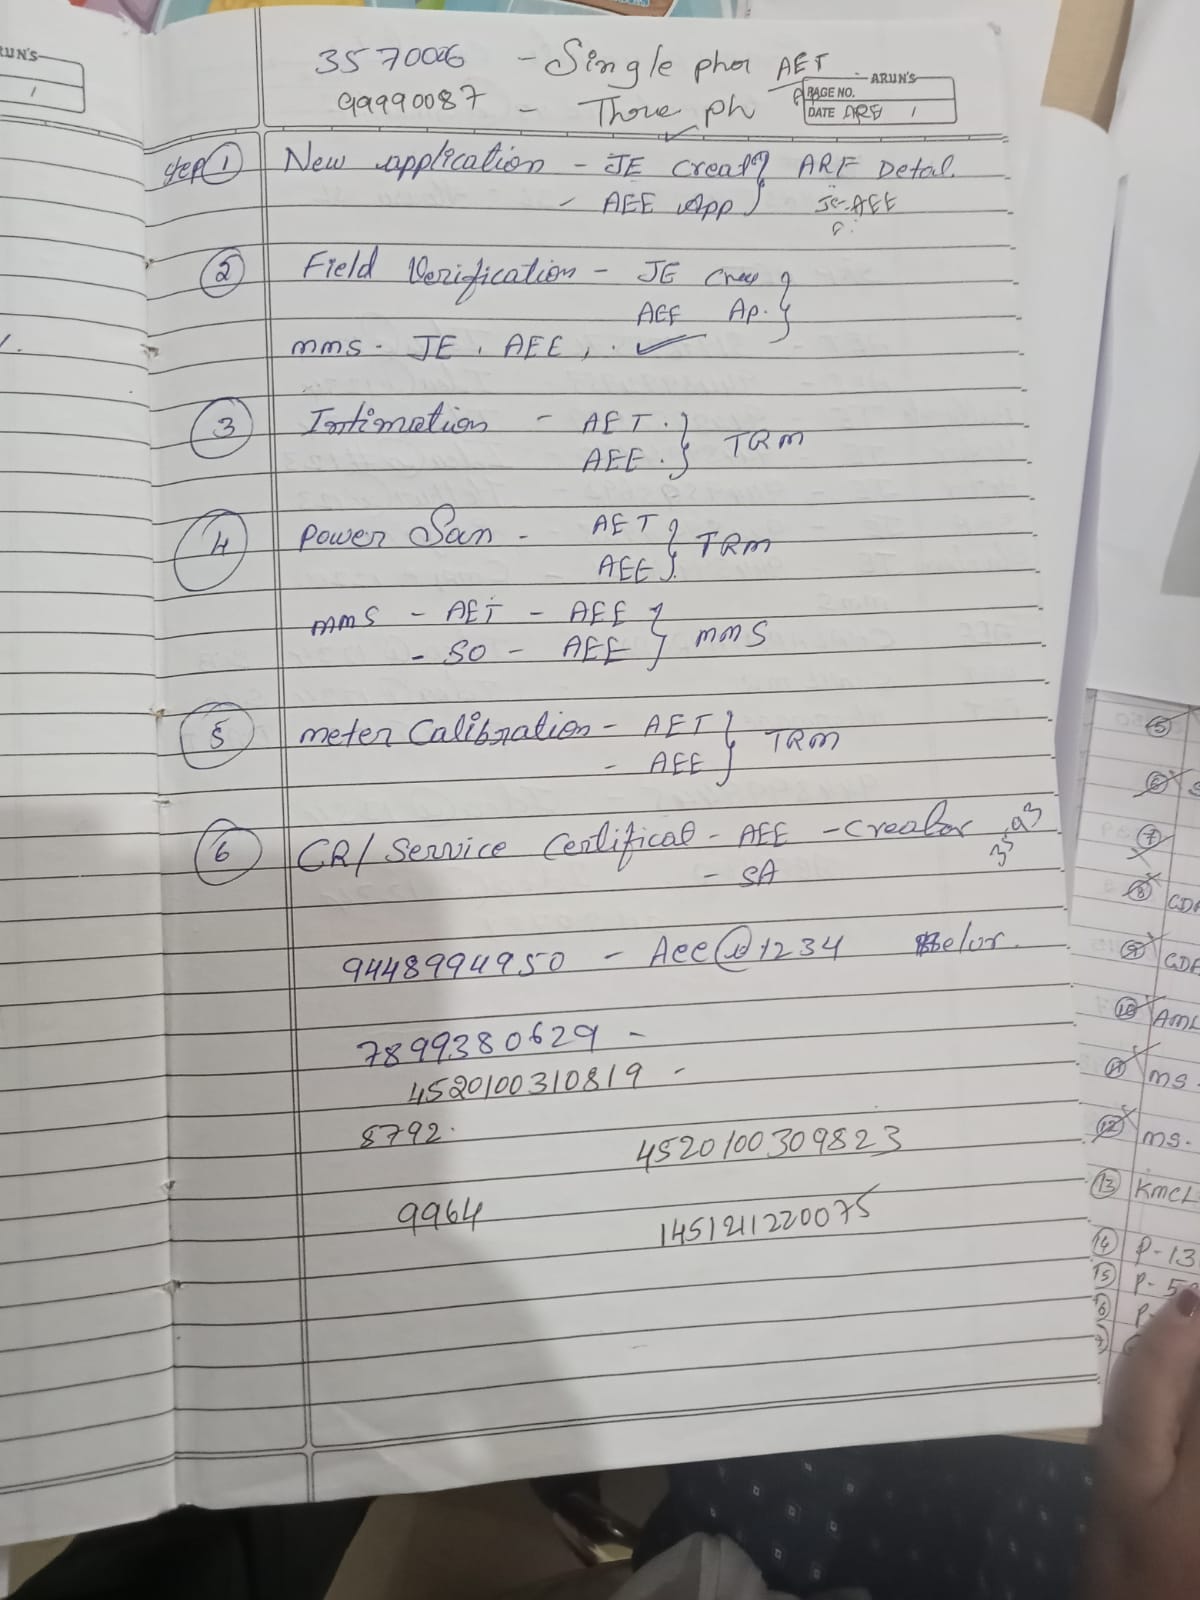 3570026 - Single phor AET
99990087 - Three ph
ARUN'S
PAGE NO.
DATE
step 1 New application - JE Creat } ARF Detal.
- AEE App } JE-AEE
2 Field Verification - JE Crea }
AEE Ap. }
mms - JE, AEE,
3 Intimation - AET. } TRM
AEE. }
4 Power San - AET } TRM
AEE }
mms - AET - AEE } mms
- SO - AEE }
5 meter Calibration - AET } TRM
- AEE }
6 CR/ Service Certifical - AEE - Creator
- SA
9448994950 - Aee@1234 Belur.
7899380629 -
4520100310819 -
8792.
4520100309823
9964
1451211220075
RUN'S
5
6
7
8 CDA
9 CDA
10 AML
11 MS.
12 MS.
13 KMCL
14 P-13
15 P-5
16 P-